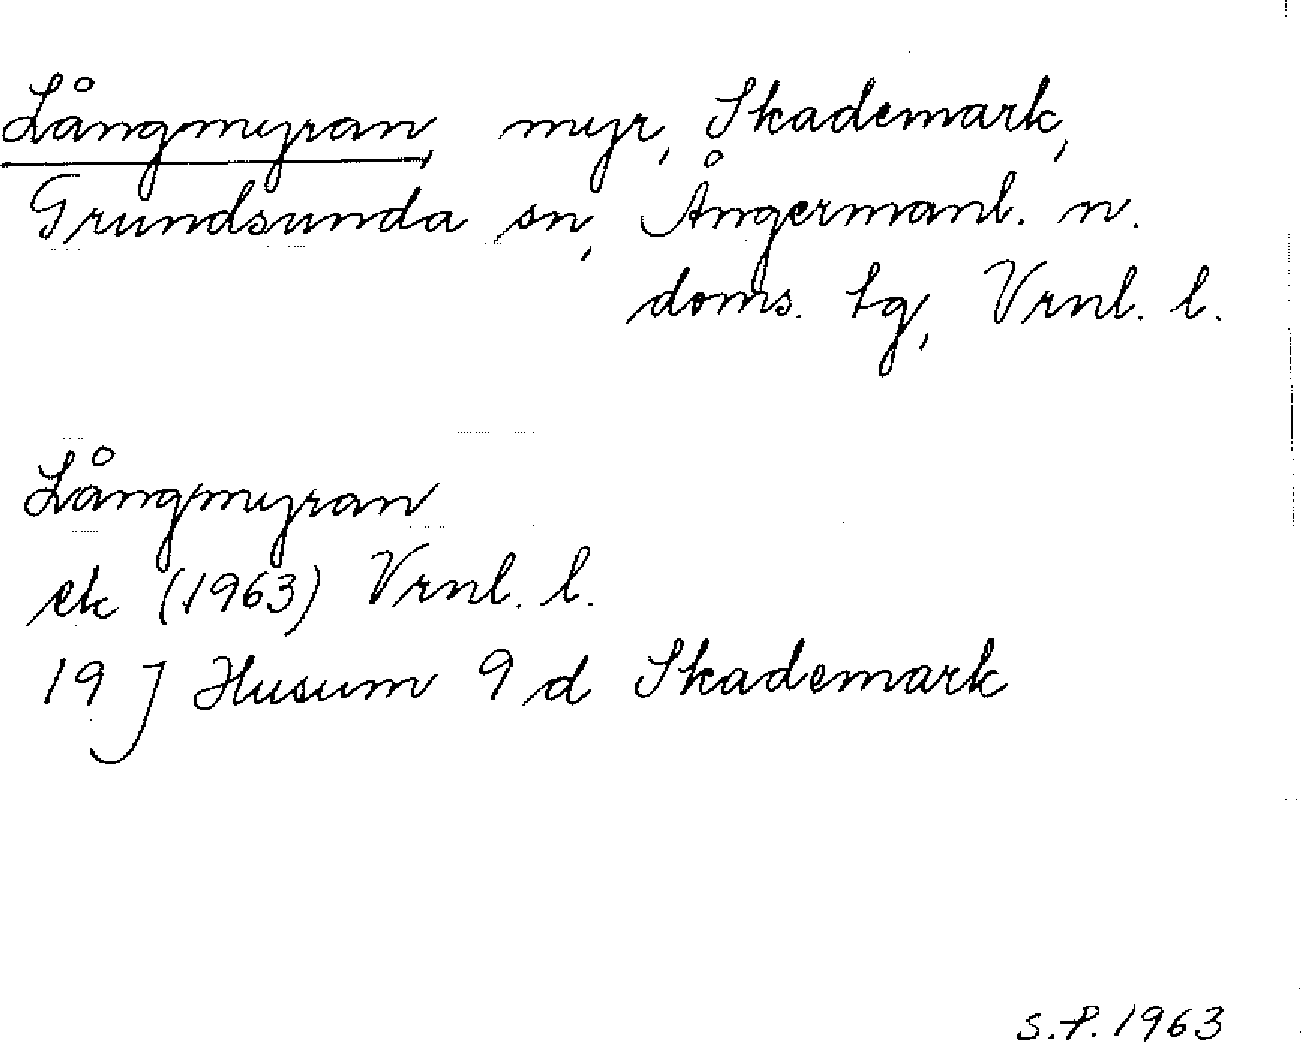 Långmyran, myr, Skademark,
Grundsunda sn, Ångermanl. n.
doms. tg, Vrnl. l.
Långmyran
ek (1963) Vrnl. l.
19 J Husum 9 d Skademark
S.P. 1963